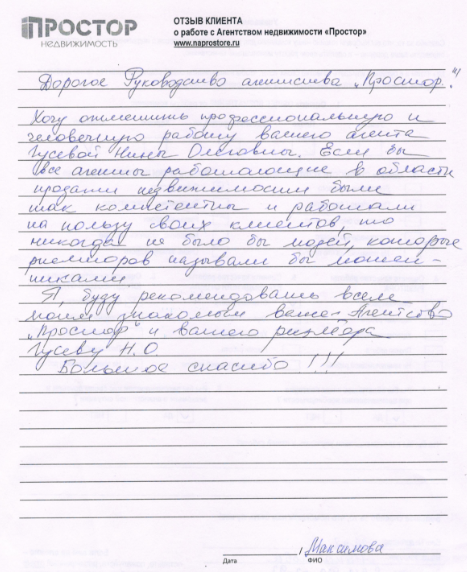 ПРОСТОР
НЕДВИЖИМОСТЬ
ОТЗЫВ КЛИЕНТА
о работе с Агентством недвижимости «Простор»
www.naprostore.ru
Дорогое Руководство агентства „Простор"!
Хочу отметить профессиональную и
человечную работу вашего агента
Гусевой Нины Олеговны. Если бы
все агенты работающие в области
продажи недвижимости были
так компетентны и работали
на пользу своих клиентов, то
никогда не было бы людей, которые
риелторов называли бы мошен-
никами.
Я, буду рекомендовать всем
моим знакомым ваше Агентство
„Простор" и вашего риэлтора
Гусеву Н.О.
Большое спасибо !!!
/ Максимова
Дата ФИО